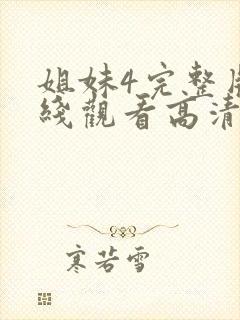 姐妹4完整
綫觀看高清
寒若雪